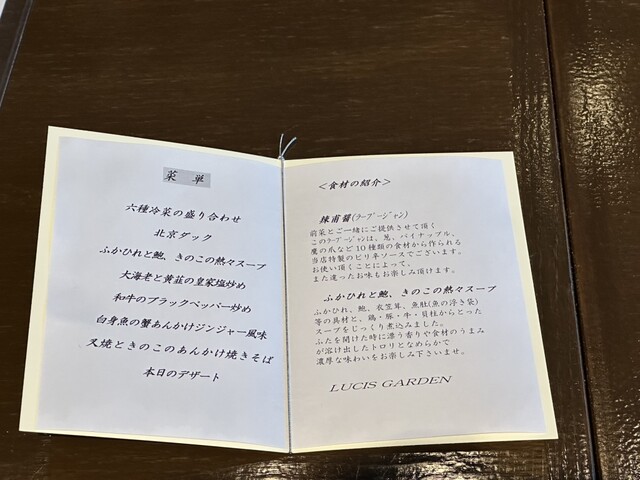 菜 単
六種冷菜の盛り合わせ
北京ダック
ふかひれと鮑、きのこの熱々スープ
大海老と黄韮の皇家塩炒め
和牛のブラックペッパー炒め
白身魚の蟹あんかけジンジャー風味
叉焼ときのこのあんかけ焼きそば
本日のデザート
＜食材の紹介＞
辣甫醤(ﾗｰﾌﾟｰｼﾞｬﾝ)
前菜とご一緒にご提供させて頂く
このﾗｰﾌﾟｰｼﾞｬﾝは、葱、パイナップル、
鷹の爪など10種類の食材から作られる
当店特製のピリ辛ソースでございます。
お使い頂くことによって、
また違ったお味もお楽しみ頂けます。
ふかひれと鮑、きのこの熱々スープ
ふかひれ、鮑、衣笠茸、魚肚(魚の浮き袋)
等の具材と、鶏・豚・牛・貝柱からとった
スープをじっくり煮込みました。
ふたを開けた時に漂う香りや食材のうまみ
が溶け出したトロリとなめらかで
濃厚な味わいをお楽しみ下さいませ。
LUCIS GARDEN